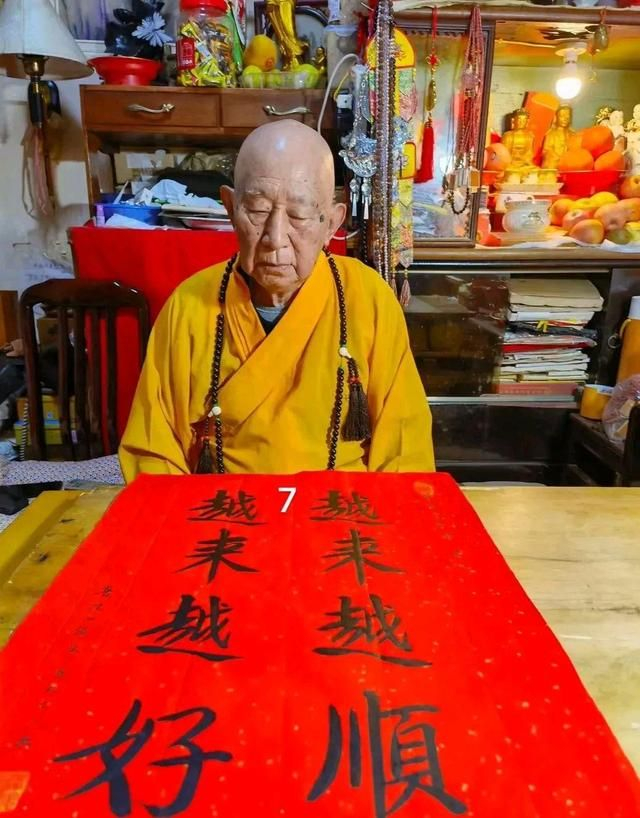 7
越来越順
越来越好